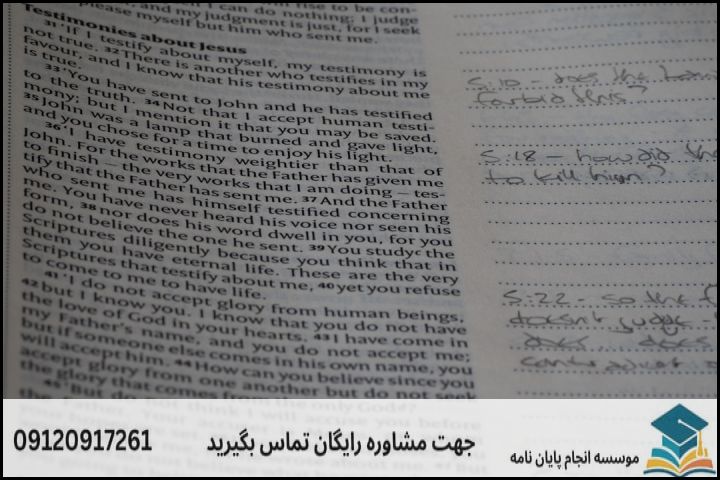 rise to be con-
I can do nothing; I judge
and my judgment is just, for I seek
please myself but him who sent me.
Testimonies about Jesus
31 ‘If I testify about myself, my testimony is
not true. 32 There is another who testifies in my
favour, and I know that his testimony about me
is true.
33 ‘You have sent to John and he has testified
to the truth. 34 Not that I accept human testi-
mony; but I mention it that you may be saved.
35 John was a lamp that burned and gave light,
and you chose for a time to enjoy his light.
36 ‘I have testimony weightier than that of
John. For the works that the Father has given me
to finish – the very works that I am doing – tes-
tify that the Father has sent me. 37 And the Father
who sent me has himself testified concerning
me. You have never heard his voice nor seen his
form, 38 nor does his word dwell in you, for you
do not believe the one he sent. 39 You study the
Scriptures diligently because you think that in
them you have eternal life. These are the very
Scriptures that testify about me, 40 yet you refuse
to come to me to have life.
41 ‘I do not accept glory from human beings,
42 but I know you. I know that you do not have
the love of God in your hearts. 43 I have come in
my Father’s name, and you do not accept me;
but if someone else comes in his own name, you
will accept him. 44 How can you believe since you
accept glory from one another but do not seek
the glory that comes from the only God?
45 ‘But do not think I will accuse you before
the Father. Your
5:10 - does the
forbid this?
5:18 - how did the
to kill him?
5:22 - so the
doesn't judge -
does. does
جهت مشاوره رایگان تماس بگیرید 09120917261
موسسه انجام پایان نامه